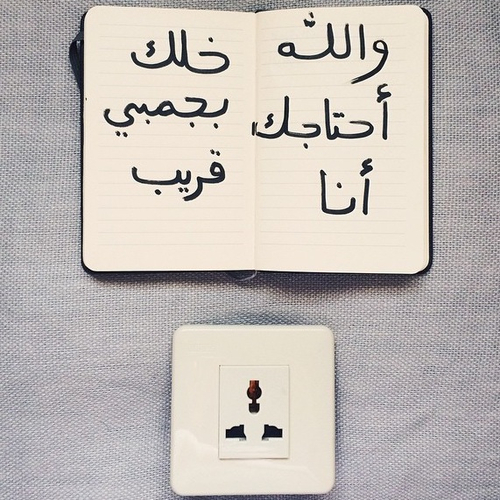 والله
أحتاجك
أنا
خلك
بجمبي
قريب